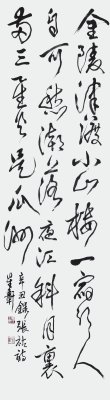 金陵津渡小山樓一宿行人
自可愁潮落夜江斜月裏
兩三星火是瓜洲
辛丑錄張祜詩